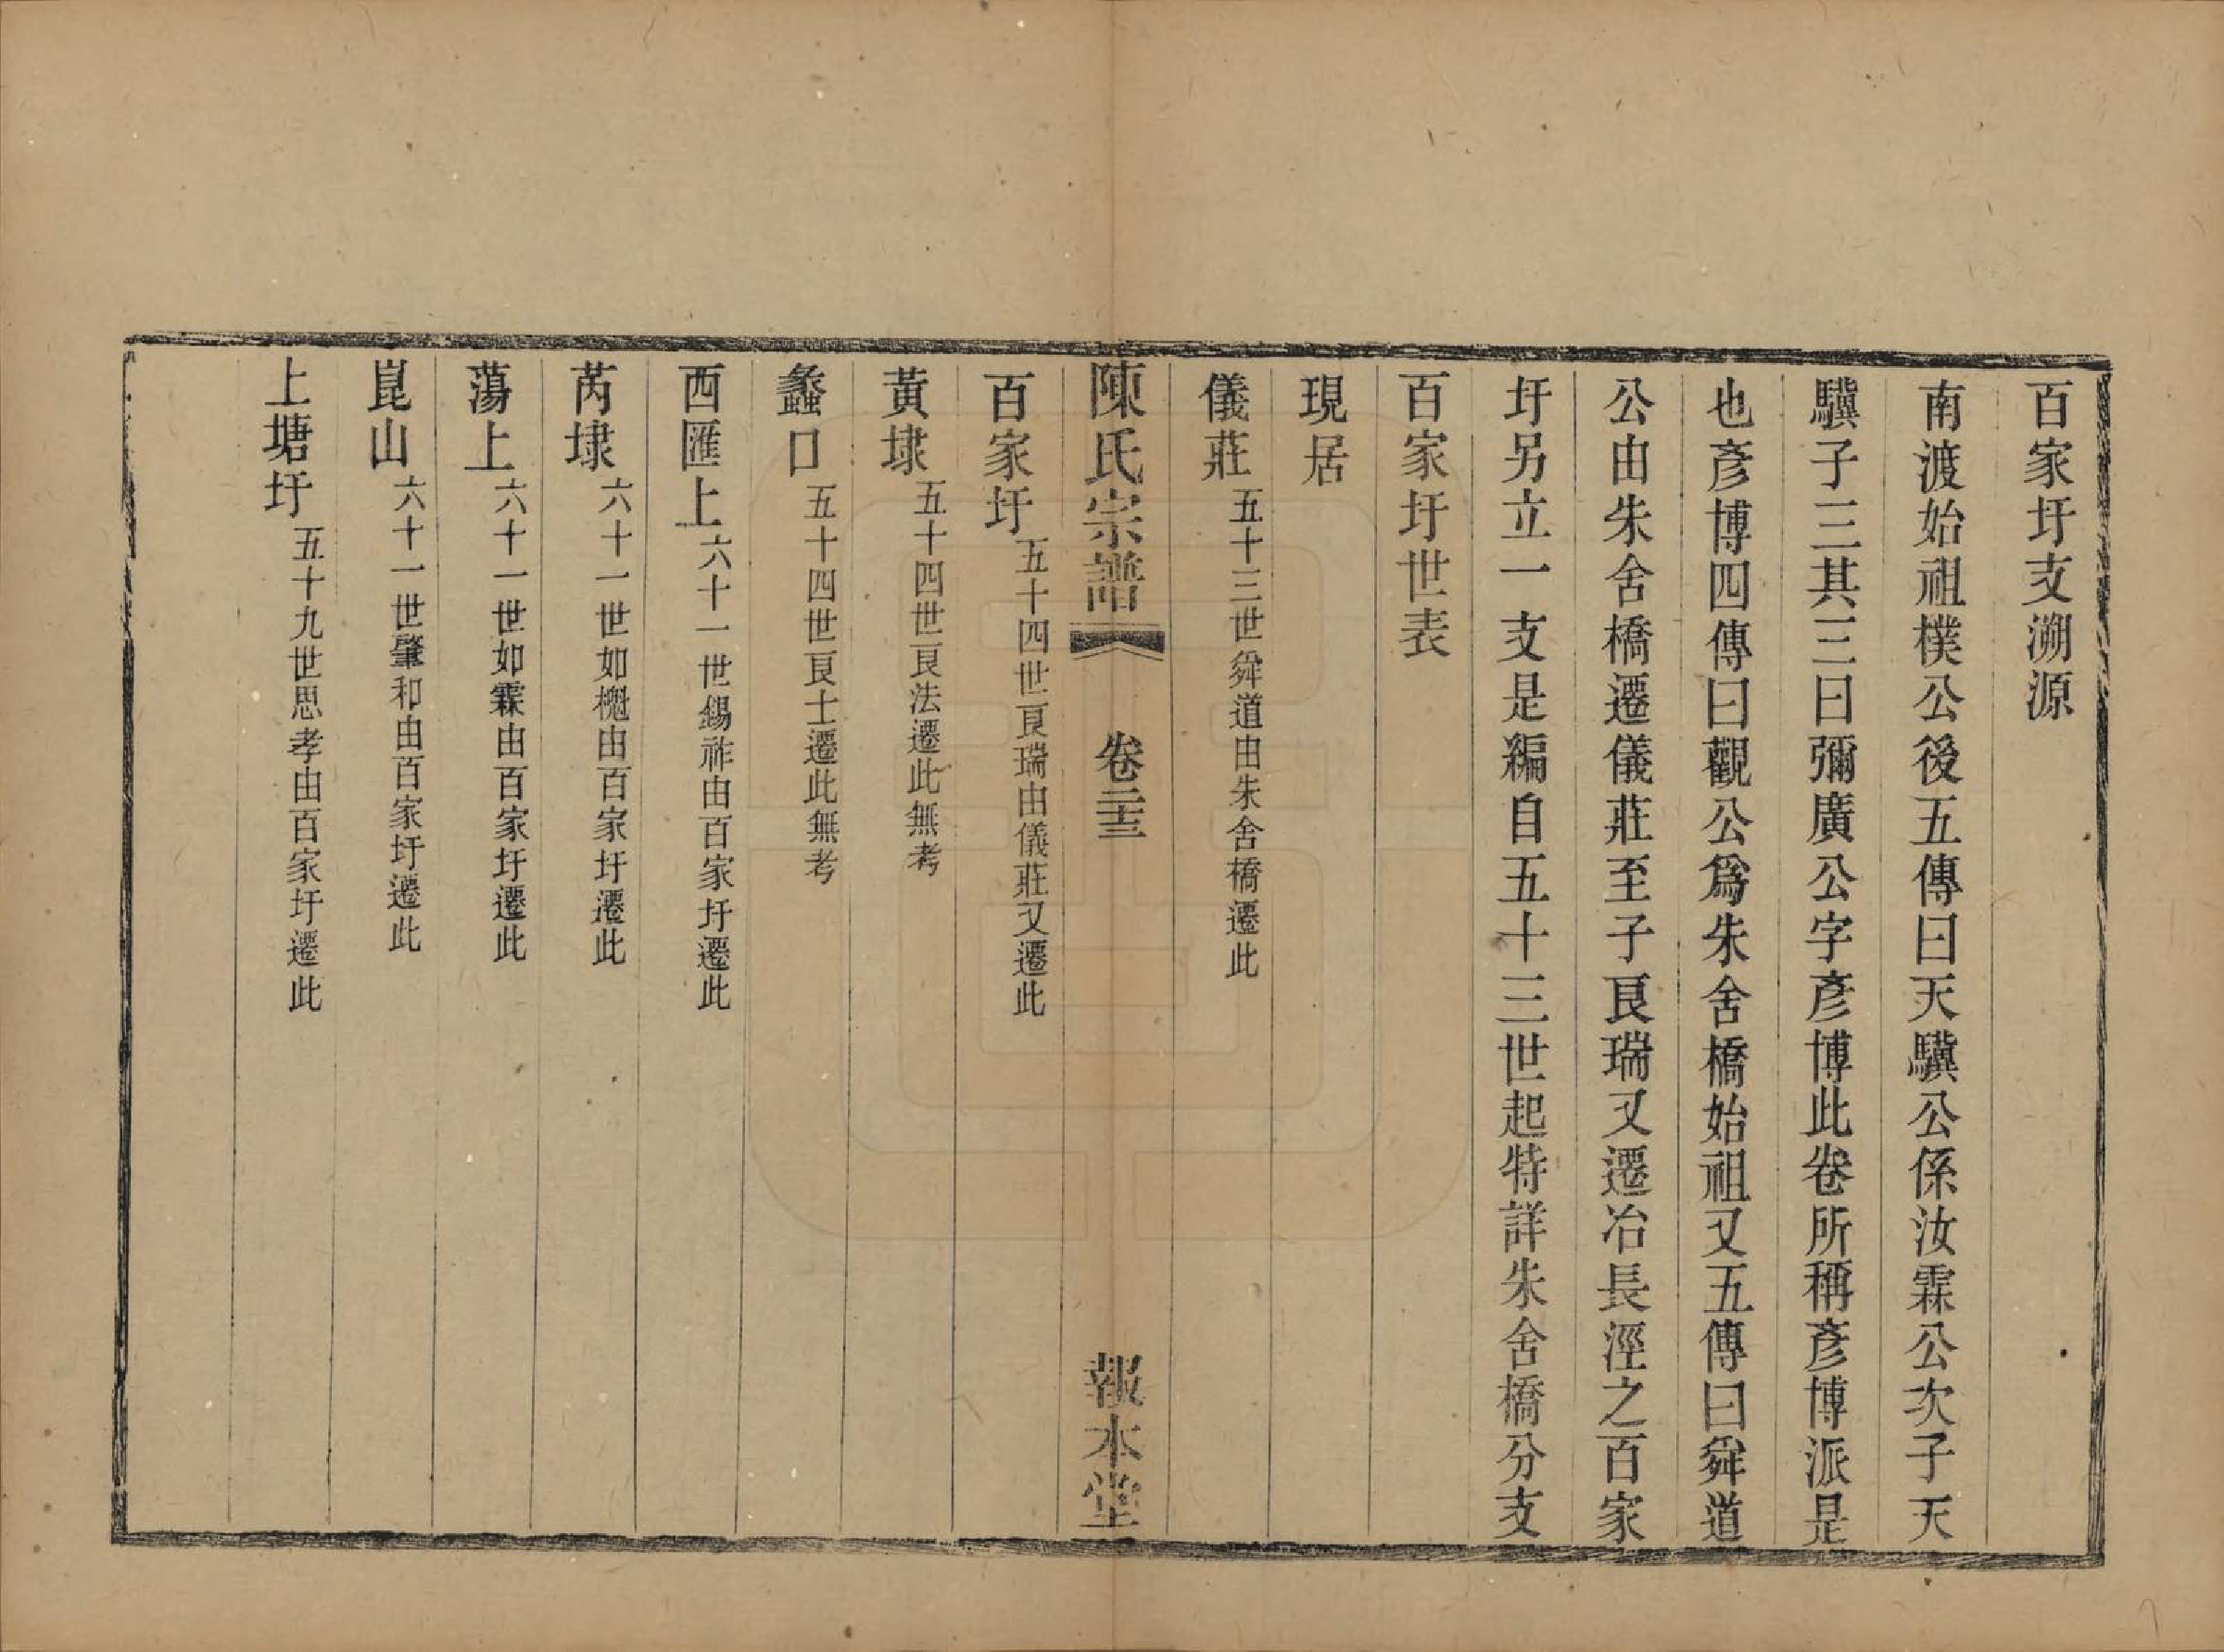 百家圩支溯源
南渡始祖樸公後五傳曰天驥公係汝霖公次子天
驥子三其三曰彌廣公字彥博此卷所稱彥博派是
也彥博四傳曰觀公爲朱舍橋始祖又五傳曰舜道
公由朱舍橋遷儀莊至子艮瑞又遷冶長涇之百家
圩另立一支是編自五十三世起特詳朱舍橋分支
百家圩世表
現居
儀莊 五十三世舜道由朱舍橋遷此
陳氏宗譜 卷二十三 報本堂
百家圩 五十四世艮瑞由儀莊又遷此
黃埭 五十四世艮法遷此無考
蠡口 五十四世艮士遷此無考
西匯上 六十一世錫祚由百家圩遷此
芮埭 六十一世如槐由百家圩遷此
蕩上 六十一世如霖由百家圩遷此
崑山 六十一世肇和由百家圩遷此
上塘圩 五十九世思孝由百家圩遷此